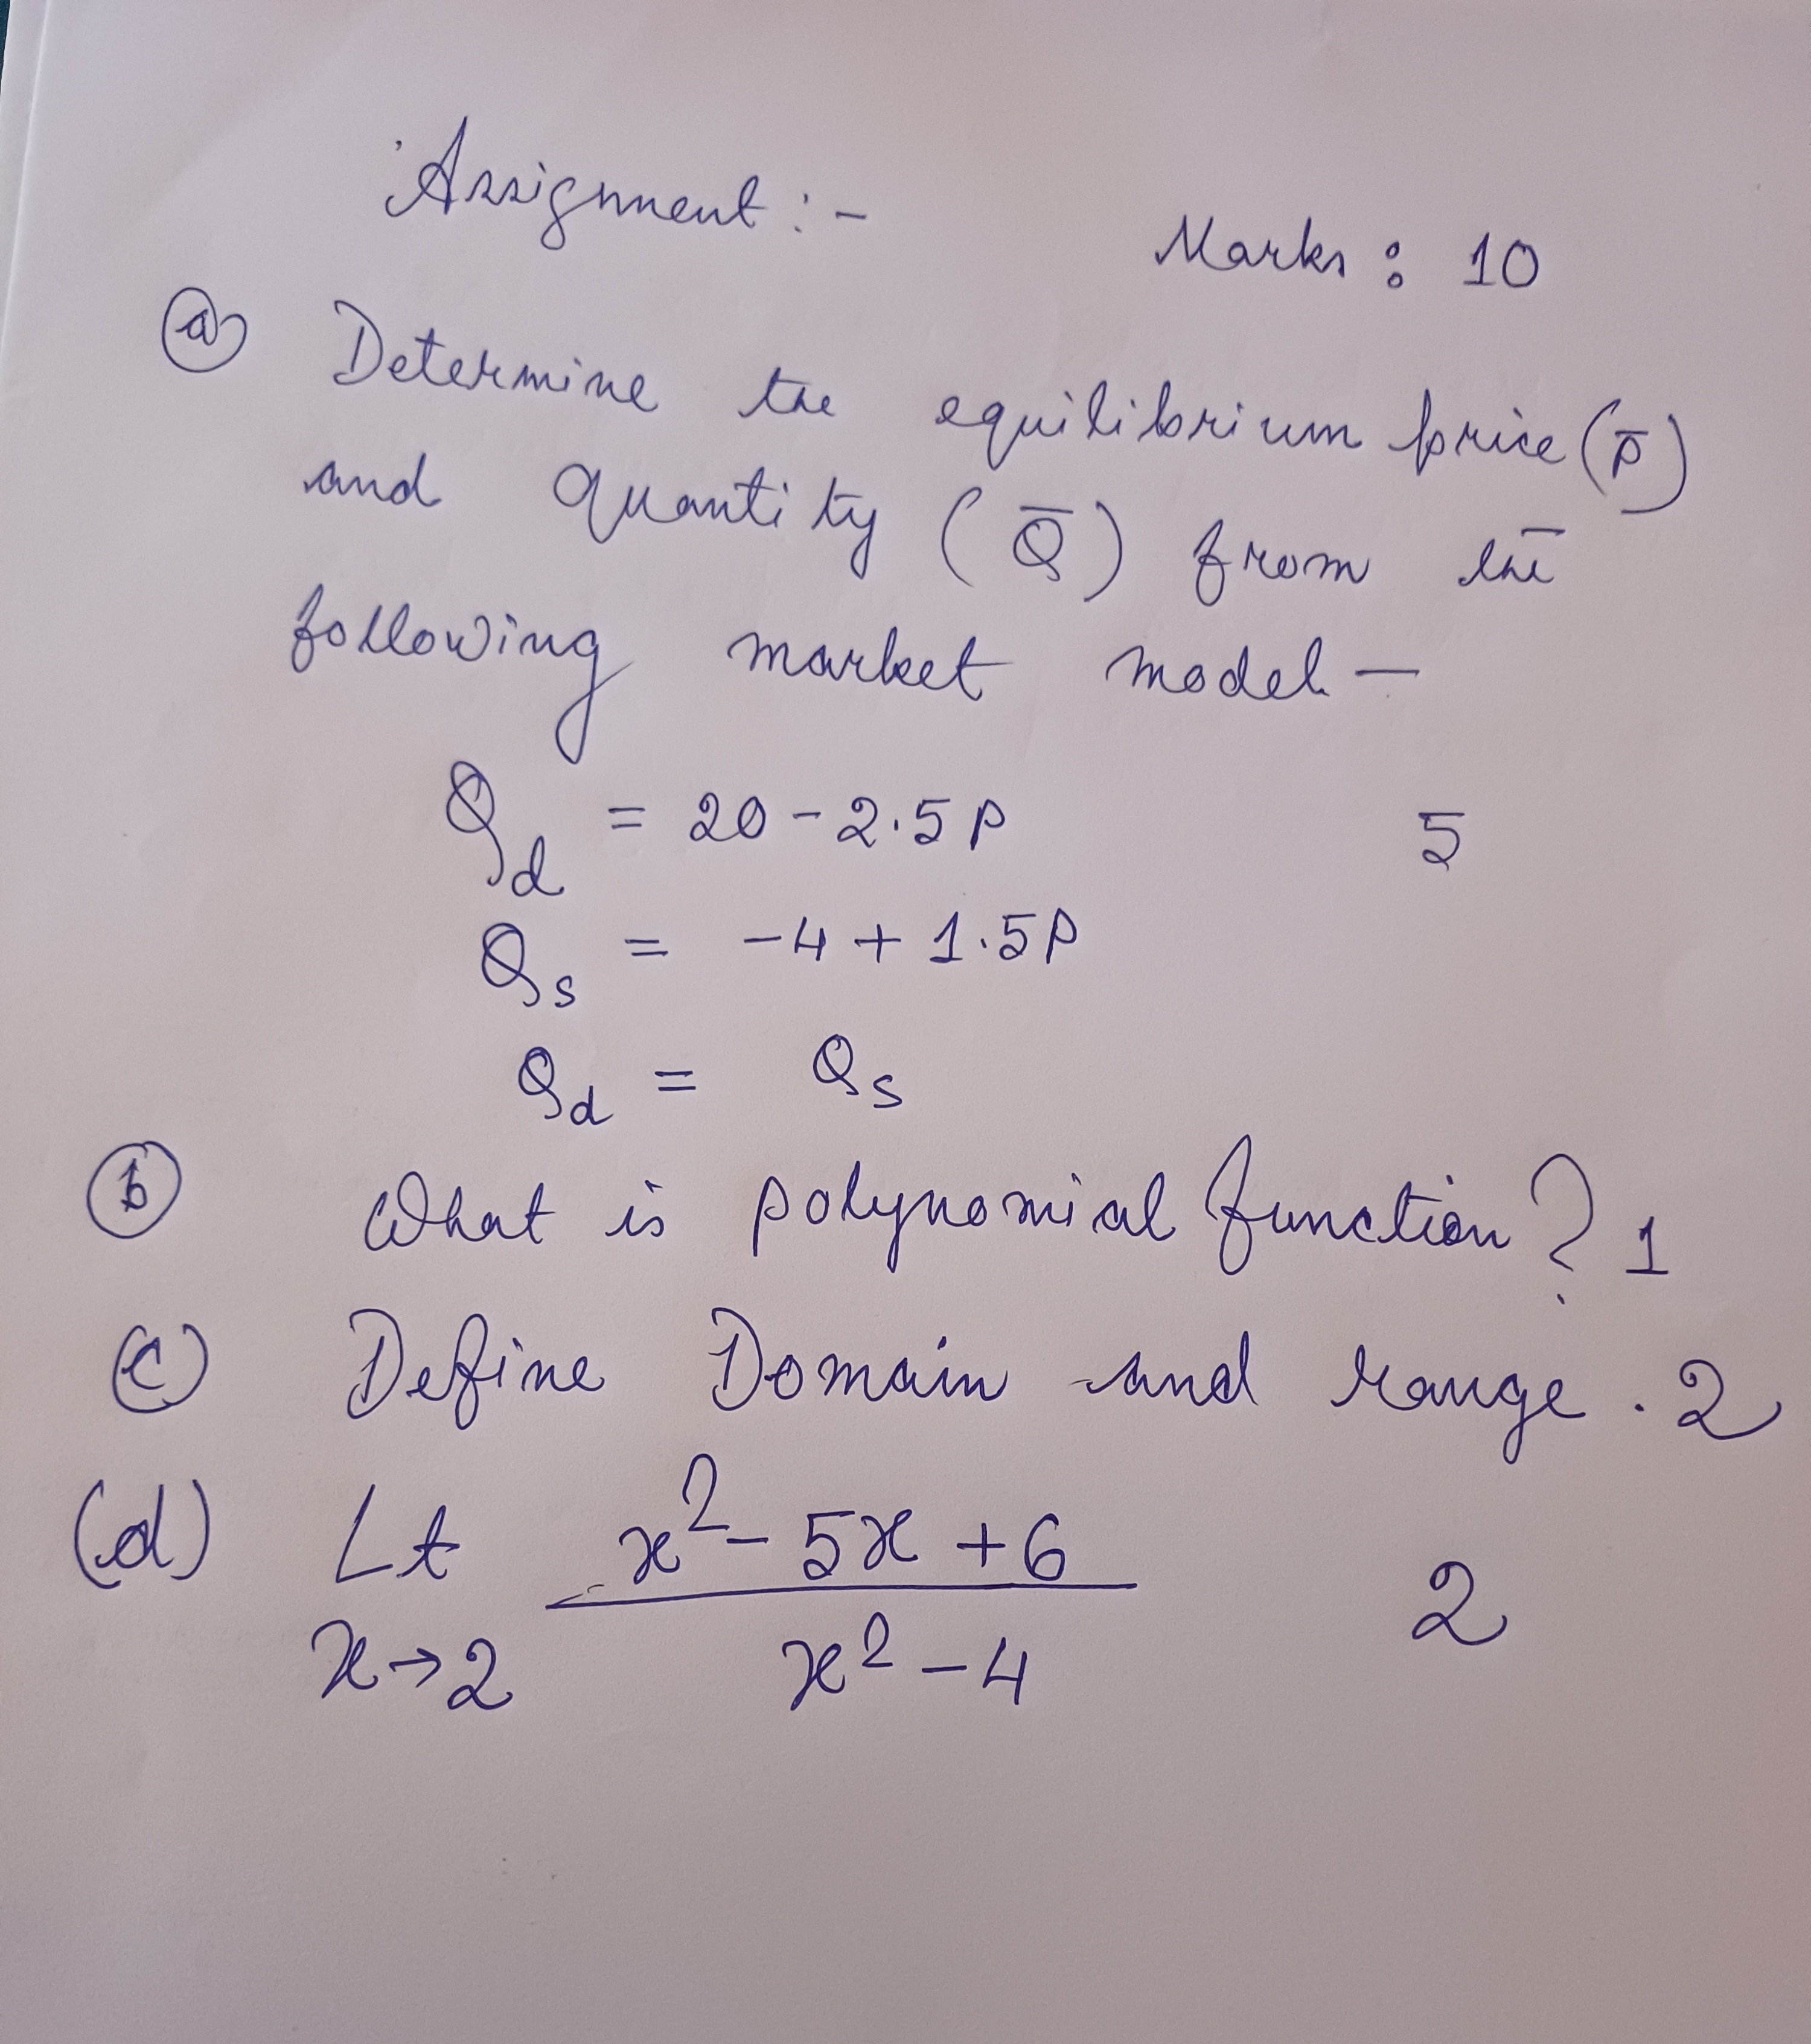 Assignment :-
Marks : 10
(a) Determine the equilibrium price (p̄)
and quantity (Q̄) from the
following market model —
Qd = 20 - 2.5P 5
Qs = -4 + 1.5P
Qd = Qs
(b) What is polynomial function? 1
(c) Define Domain and range. 2
(d) Lt x² - 5x + 6 2
x→2 x² - 4